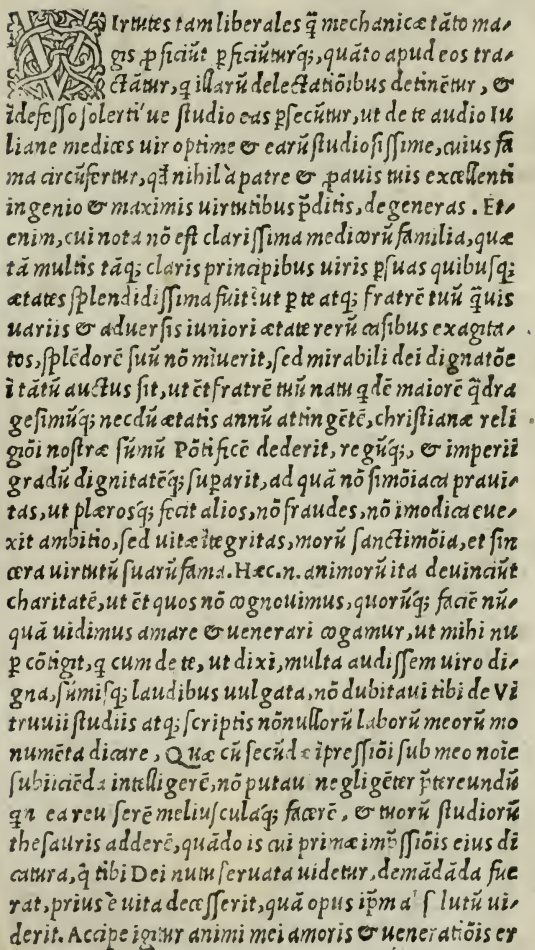 VIrtutes tam liberales q̃ mechanicæ tãto ma/
gis ꝓficiũt ꝑficiũturq;, quãto apud eos tra/
ctãtur, q illarũ delectatiõibus detinẽtur, &
ĩdefesso solerti'ue studio eas ꝑsecũtur, ut de te audio Iu
liane medices uir optime & earũ studiosissime, cuius fa
ma circũfertur, qđ nihil à patre & ꝓauis tuis excellenti
ingenio & maximis uirtutibus p̃ditis, degeneras. Et/
enim, cui nota nõ est clarissima medicorũ familia, quæ
tã multis tãq; claris principibus uiris ꝑ suas quibusq;
ætates splendidissima fuit: ut ꝑ te atq; fratrẽ tuũ q̃uis
uariis & aduersis iuniori ætate rerũ casibus exagita/
tos, splẽdorẽ suũ nõ mĩuerit, sed mirabili dei dignatõe
ĩ tãtũ auctus sit, ut ẽt fratrẽ tuũ natu qdẽ maiorẽ q̃dra
gesimũq; necdũ ætatis annũ attingẽtẽ, christianæ reli
giõi nostræ sũmũ Põtificẽ dederit, regũq;, & imperii
gradũ dignitatẽq; suꝑarit, ad quã nõ simõiaca prauï/
tas, ut plærosq; fecit alios, nõ fraudes, nõ imodica eue/
xit ambitio, sed uitæ ĩtegritas, morũ sanctimõia, et sin
cera uirtutũ suarũ fama. Hæc.n. animorũ ita deuinciũt
charitatẽ, ut ẽt quos nõ cognouimus, quorũq; faciẽ nũ/
quã uidimus amare & uenerari cogamur, ut mihi nu
ꝑ cõtigit, q cum de te, ut dixi, multa audissem uiro di/
gna, sũmisq; laudibus uulgata, nõ dubitaui tibi de Vi
truuii studiis atq; scriptis nõnullorũ laborũ meorũ mo
numẽta dicare, Quæ cũ secũdæ ĩpressiõi sub meo noĩe
subiiciẽda intelligerẽ, nõ putaui negligẽter p̃tereundũ
qn ea reuiserẽ meliusculaq; facerẽ, & tuorũ studiorũ
thesauris adderẽ, quãdo is cui primæ imp̃ssiõis eius di
catura, q̃ tibi Dei nutu seruata uidetur, demãdãda fue
rat, prius è uita decesserit, quã opus ip̃m absolutũ ui/
derit. Accipe igitur animi mei amoris & ueneratiõis er